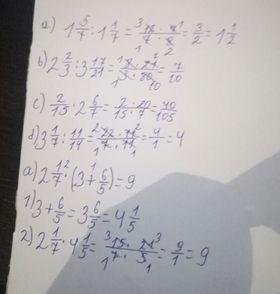 a) 1 5/7 : 1 1/7 = 12·7/7·8 = 3/2 = 1 1/2
b) 2 2/3 : 3 17/21 = 8·21/3·80 = 7/10
c) 2/15 · 2 6/7 = 2·20/15·7 = 40/105
d) 3 1/7 : 11/14 = 22·14/7·11 = 4/1 = 4
a) 2 1/7 · (3 + 6/5) = 9
1) 3 + 6/5 = 3 6/5 = 4 1/5
2) 2 1/7 · 4 1/5 = 15·21/7·5 = 9/1 = 9